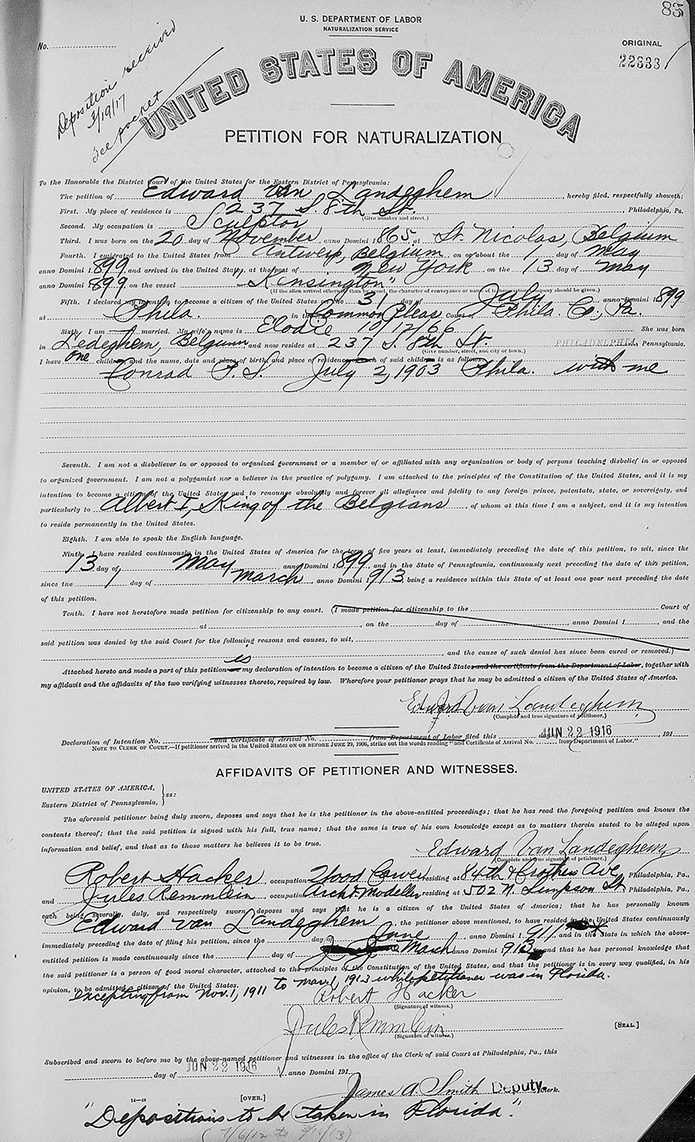 83
U. S. DEPARTMENT OF LABOR
NATURALIZATION SERVICE
No.
ORIGINAL
22333
Deposition received
3/19/17
see pocket
UNITED STATES OF AMERICA
PETITION FOR NATURALIZATION
To the Honorable the District Court of the United States for the Eastern District of Pennsylvania:
The petition of Edward Van Landeghem, hereby filed, respectfully showeth:
First. My place of residence is 237 S. 8th St. (Give number and street.) Philadelphia, Pa.
Second. My occupation is Sculptor
Third. I was born on the 20 day of November, anno Domini 1865 at St. Nicolas, Belgium
Fourth. I emigrated to the United States from Antwerp, Belgium, on or about the 1 day of May
anno Domini 1899, and arrived in the United States, at the port of New York on the 13 day of May
anno Domini 1899 on the vessel "Kensington"
(If the alien arrived otherwise than by vessel, the character of conveyance or name of transportation company should be given.)
Fifth. I declared my intention to become a citizen of the United States on the 31 day of July anno Domini 1899
at Phila. in the Common Pleas Court of Phila. Co., Pa.
Sixth. I am married. My wife's name is Elodie 10/12/66 She was born
in Ledeghem, Belgium and now resides at 237 S. 8th St. PHILADELPHIA, Pennsylvania.
(Give number, street, and city or town.)
I have one children, and the name, date and place of birth, and place of residence of each of said children is as follows:
Conrad P. S. July 2, 1903 Phila. with me
Seventh. I am not a disbeliever in or opposed to organized government or a member of or affiliated with any organization or body of persons teaching disbelief in or opposed
to organized government. I am not a polygamist nor a believer in the practice of polygamy. I am attached to the principles of the Constitution of the United States, and it is my
intention to become a citizen of the United States and to renounce absolutely and forever all allegiance and fidelity to any foreign prince, potentate, state, or sovereignty, and
particularly to Albert I, King of the Belgians, of whom at this time I am a subject, and it is my intention
to reside permanently in the United States.
Eighth. I am able to speak the English language.
Ninth. I have resided continuously in the United States of America for the term of five years at least, immediately preceding the date of this petition, to wit, since the
13 day of May, anno Domini 1899, and in the State of Pennsylvania, continuously next preceding the date of this petition,
since the 1 day of March, anno Domini 1913, being a residence within this State of at least one year next preceding the date
of this petition.
Tenth. I have not heretofore made petition for citizenship to any court. (I made petition for citizenship to the Court of
at , on the day of , anno Domini 1 , and the
said petition was denied by the said Court for the following reasons and causes, to wit,
and the cause of such denial has since been cured or removed.)
Attached hereto and made a part of this petition is my declaration of intention to become a citizen of the United States and the certificate from the Department of Labor, together with
my affidavit and the affidavits of the two verifying witnesses thereto, required by law. Wherefore your petitioner prays that he may be admitted a citizen of the United States of America.
Edward Van Landeghem
(Complete and true signature of petitioner.)
Declaration of Intention No. and Certificate of Arrival No. from Department of Labor filed this JUN 22 1916 191
NOTE TO CLERK OF COURT.—If petitioner arrived in the United States ON OR BEFORE JUNE 29, 1906, strike out the words reading "and Certificate of Arrival No. from Department of Labor."
AFFIDAVITS OF PETITIONER AND WITNESSES.
UNITED STATES OF AMERICA,
Eastern District of Pennsylvania, } ss:
The aforesaid petitioner being duly sworn, deposes and says that he is the petitioner in the above-entitled proceedings; that he has read the foregoing petition and knows the
contents thereof; that the said petition is signed with his full, true name; that the same is true of his own knowledge except as to matters therein stated to be alleged upon
information and belief, and that as to those matters he believes it to be true.
Edward Van Landeghem
(Complete and true signature of petitioner.)
Robert Hacker, occupation Wood Carver, residing at 84th & Crothers Ave, Philadelphia, Pa.,
and Jules Remmlein, occupation Archt Modeller, residing at 502 N. Simpson St, Philadelphia, Pa.,
each being severally, duly, and respectively sworn, deposes and says that he is a citizen of the United States of America; that he has personally known
Edward van Landeghem, the petitioner above mentioned, to have resided in the United States continuously
immediately preceding the date of filing his petition, since the day of June, anno Domini 1911, and in the State in which the above-
entitled petition is made continuously since the 1 day of March anno Domini 1913, and that he has personal knowledge that
the said petitioner is a person of good moral character, attached to the principles of the Constitution of the United States, and that the petitioner is in every way qualified, in his
opinion, to be admitted a citizen of the United States.
excepting from Nov. 1, 1911 to Mar 1, 1913 while petitioner was in Florida.
Robert Hacker
(Signature of witness.)
Jules Remmlein
(Signature of witness.)
[SEAL.]
Subscribed and sworn to before me by the above-named petitioner and witnesses in the office of the Clerk of said Court at Philadelphia, Pa., this
JUN 22 1916 day of , anno Domini 191
James A. Smith Deputy Clerk.
[OVER.]
"Depositions to be taken in Florida."